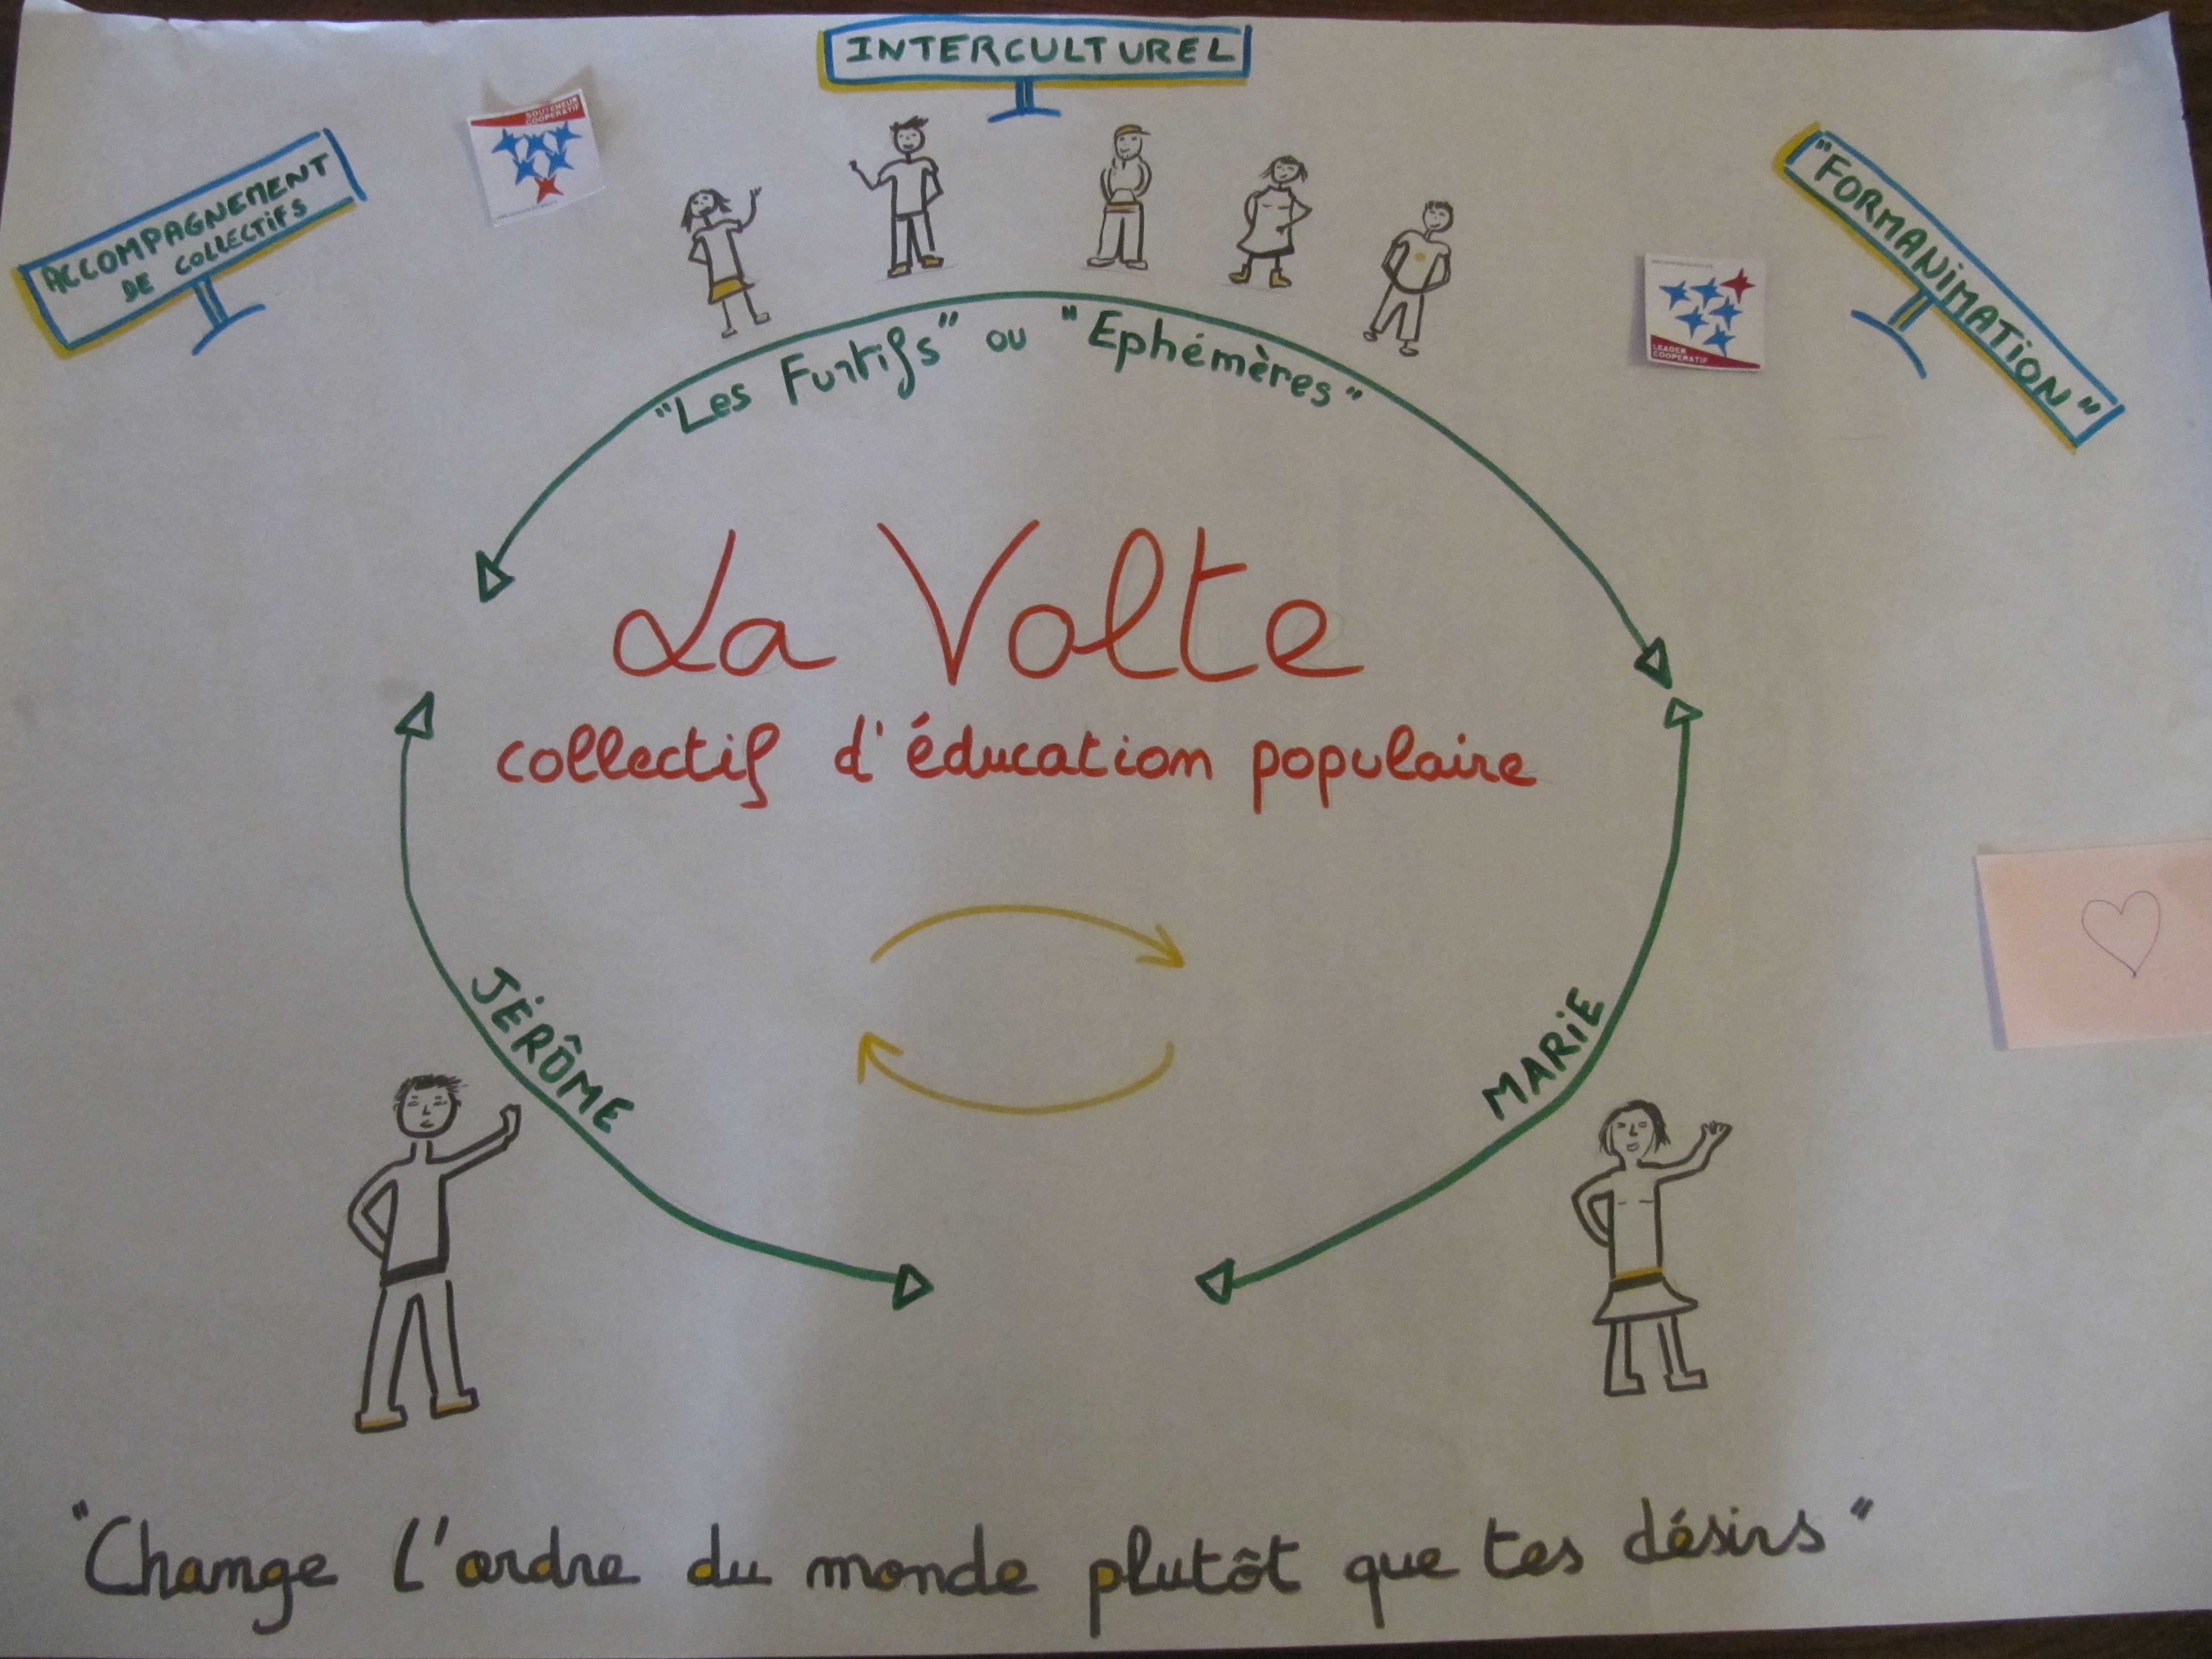 INTERCULTUREL
ACCOMPAGNEMENT
DE COLLECTIFS
SOUTENEUR
COOPERATIF
"FORMANIMATION"
LEADER
COOPERATIF
"Les Furtifs" ou "Ephémères"
La Volte
collectif d'éducation populaire
JÉRÔME
MARIE
"Change l'ordre du monde plutôt que tes désirs"